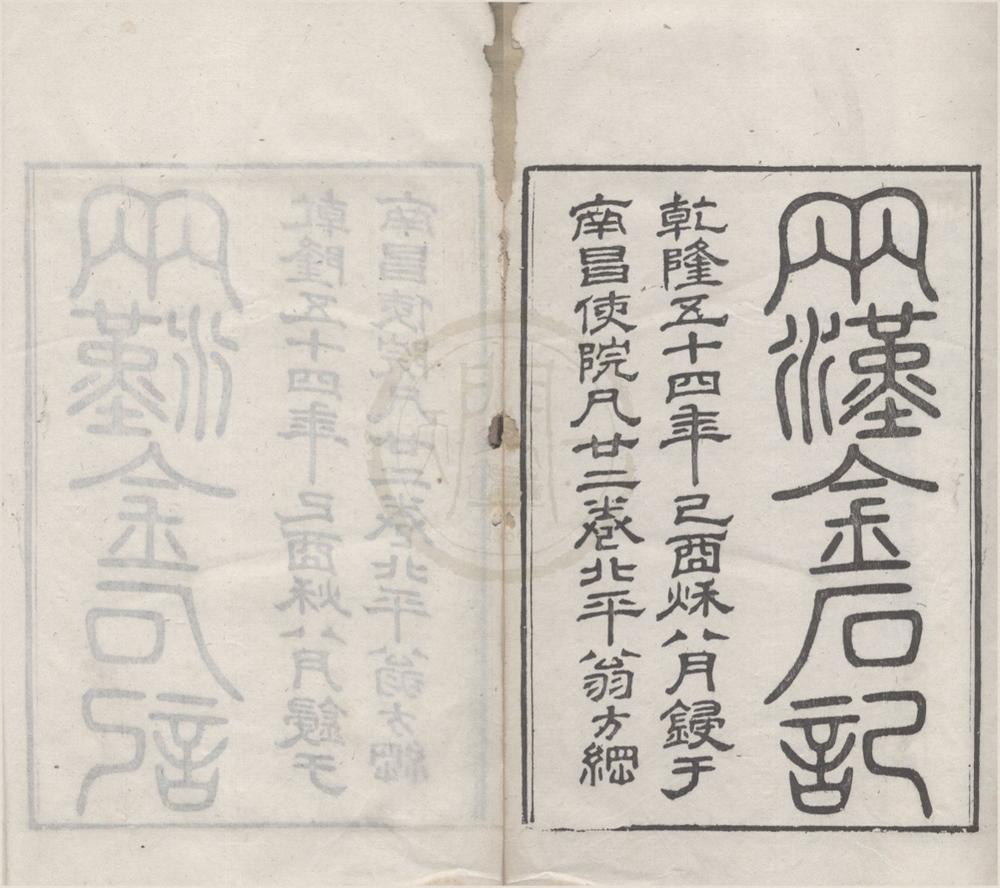 兩漢金石記
乾隆五十四年己酉秌八月鋟于
南昌使院凡廿二卷北平翁方綱